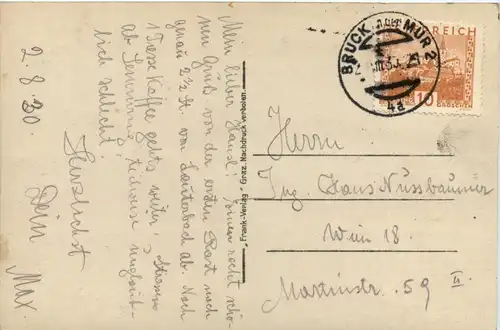 Mein lieber Hansl! Einen recht schö-
nen Gruß von der ersten Rast nach
genau 2½ St. von Lauterbach ab. Nach
1 Tasse Kaffee gehts weiter! Strassen
ab Semmering teilweise unglaub-
lich schlecht!
Herzlichst
Dein
Max.
2.8.30
"Frank-Verlag" Graz. Nachdruck verboten.
BRUCK a.d. MUR 2
4a
REICH
10
GROSCHEN
Herrn
Ing. Hans Nussbaumer
Wien 18
Martinstr. 59